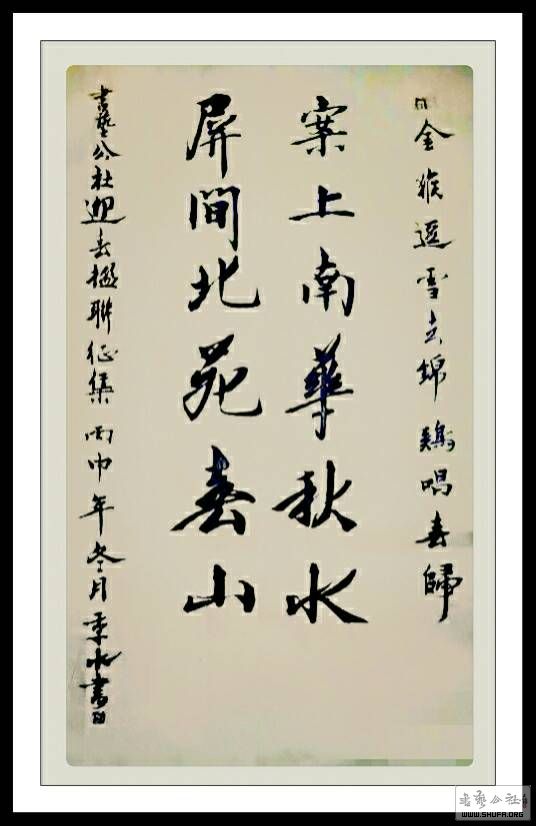 金猴逐雪去錦鷄唱春歸
案上南華秋水
屏間北苑春山
書藝公社迎春楹聯征集丙申年冬月季水書
書藝公社
WWW.SHUFA.ORG